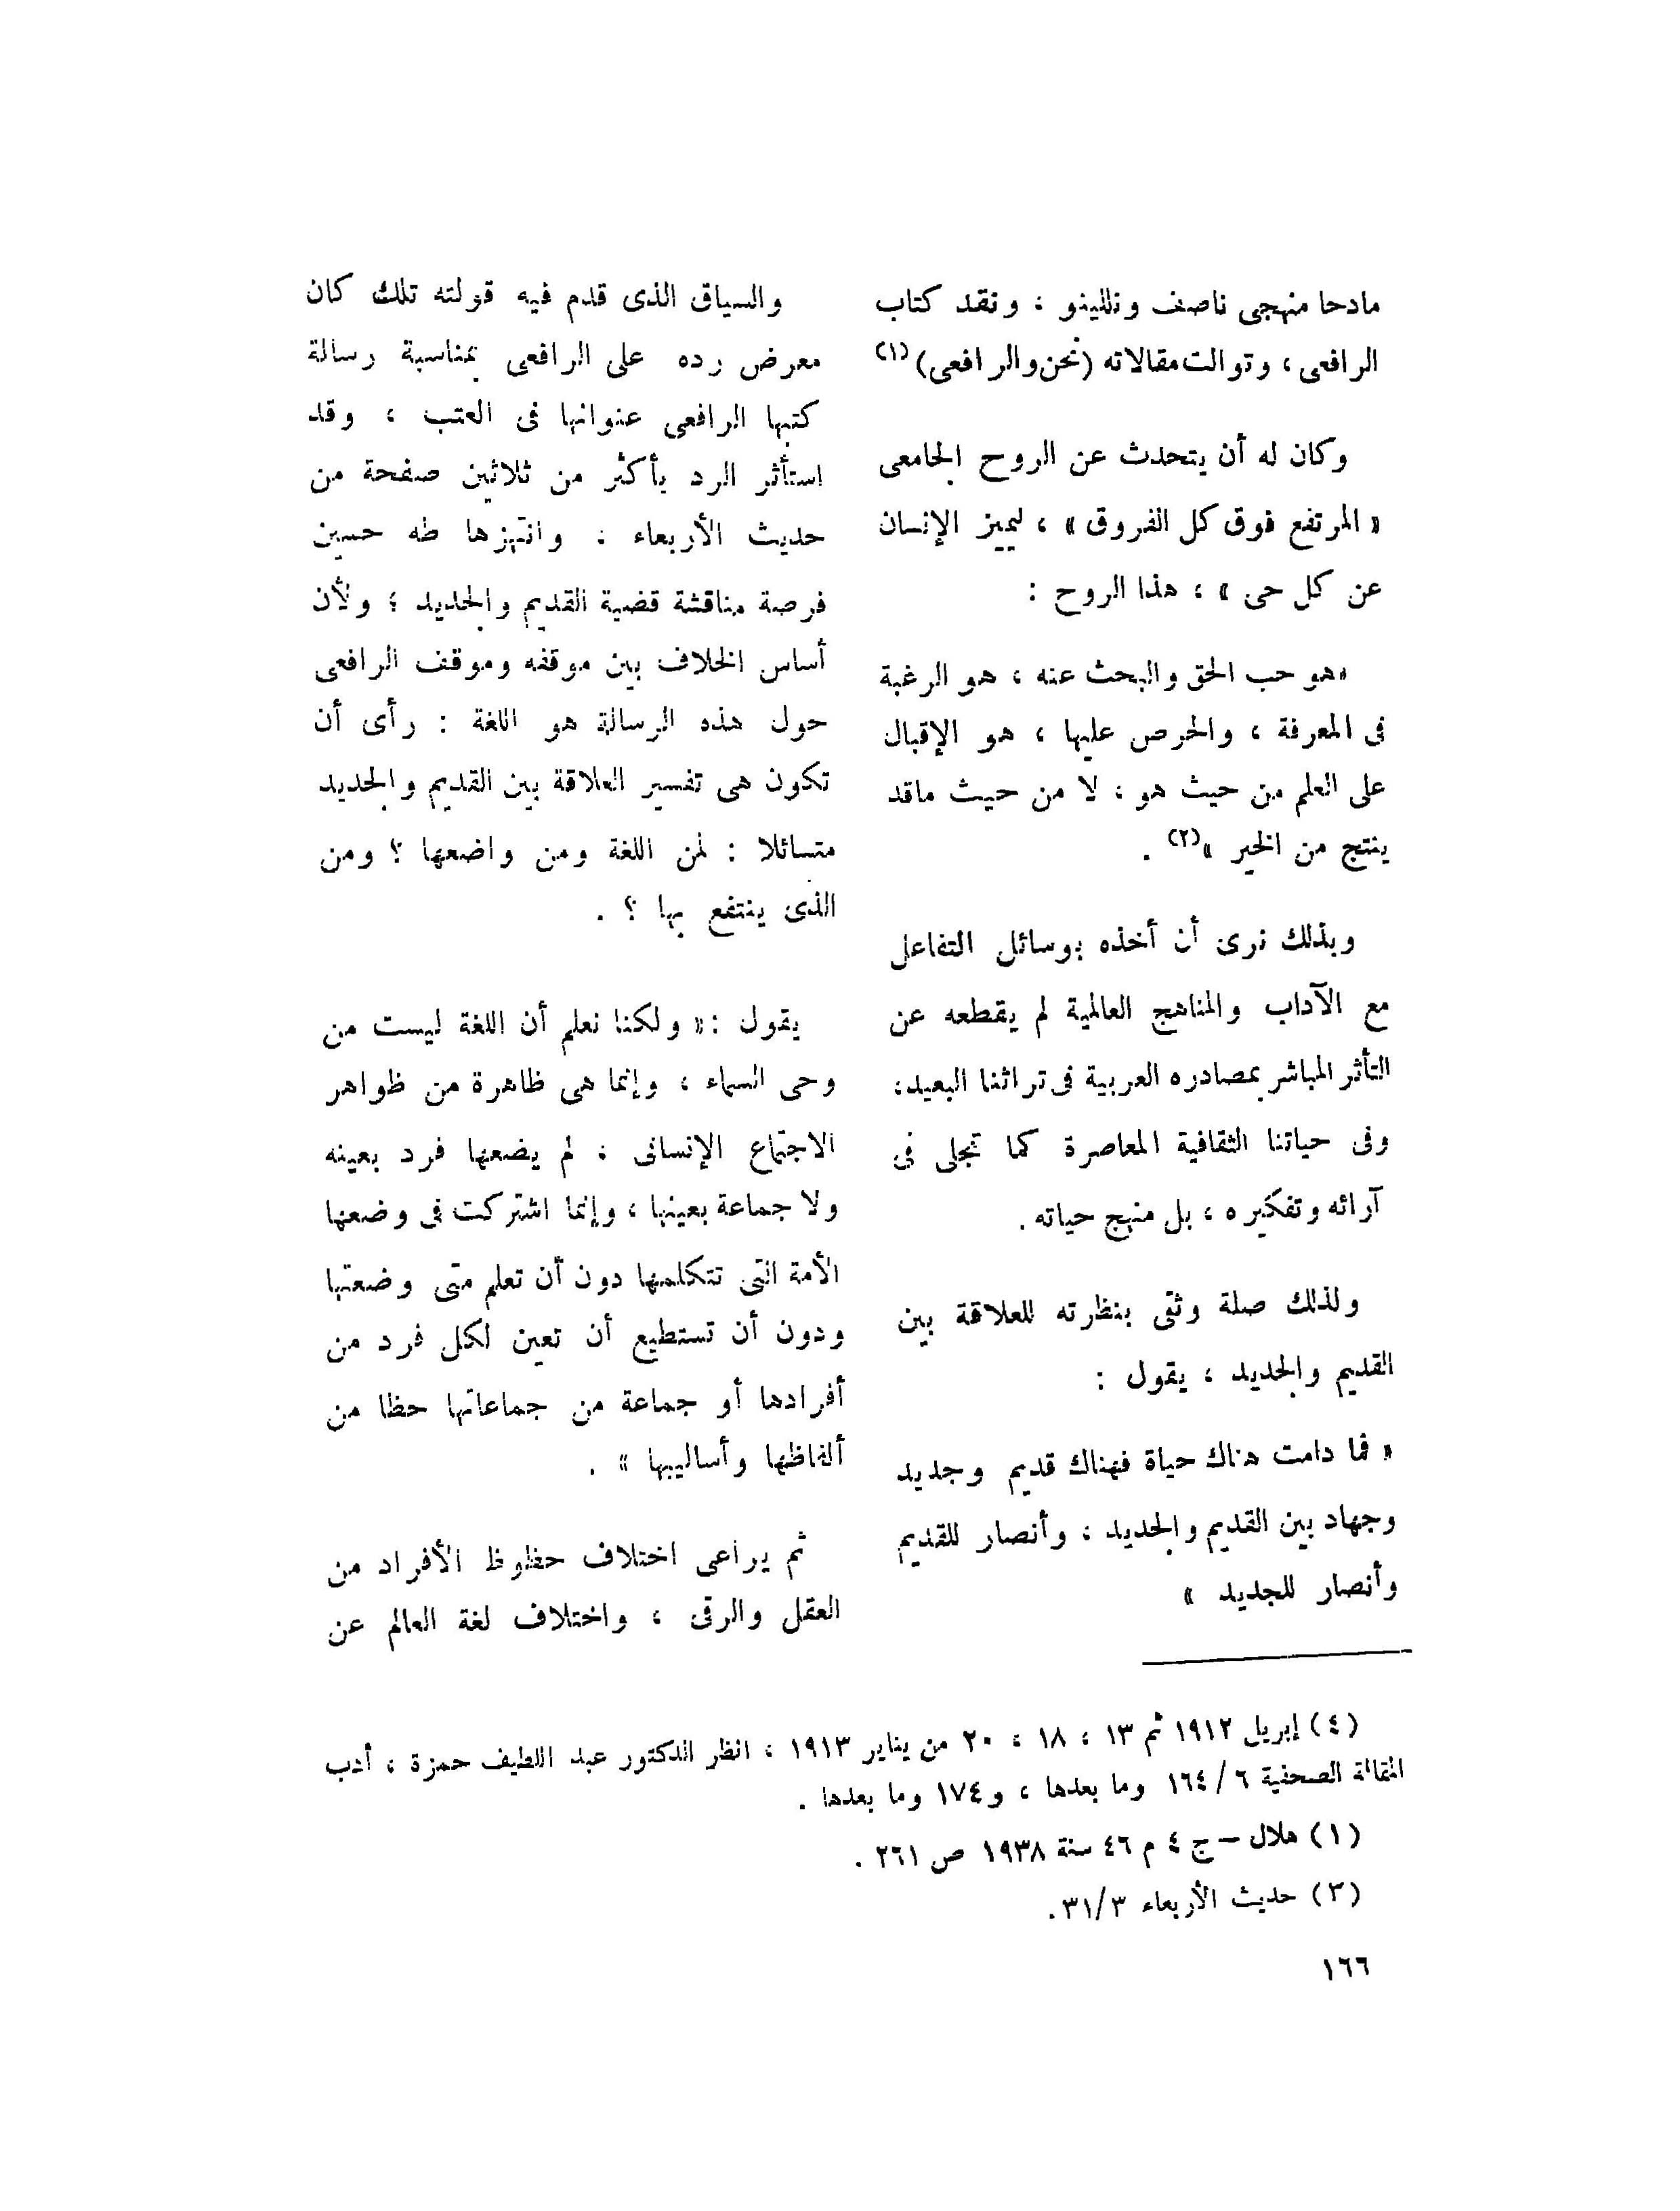 مادحا منهجى ناصف ونللينو ، ونقد كتاب
الرافعى ، وتوالت مقالاته (نحن والرافعى)(١)
وكان له أن يتحدث عن الروح الجامعى
« المرتفع فوق كل الفروق » ، ليميز الإنسان
عن كل حى » ، هذا الروح :
«هو حب الحق والبحث عنه ، هو الرغبة
فى المعرفة ، والحرص عليها ، هو الإقبال
على العلم من حيث هو ، لا من حيث ماقد
ينتج من الخير »(٢) .
وبذلك نرى أن أخذه بوسائل التفاعل
مع الآداب والمناهج العالمية لم يقطعه عن
التأثر المباشر بمصادره العربية فى تراثنا البعيد،
وفى حياتنا الثقافية المعاصرة كما تجلى فى
آرائه وتفكيره ، بل منهج حياته .
ولذلك صلة وثقى بنظرته للعلاقة بين
القديم والجديد ، يقول :
« فما دامت هناك حياة فهناك قديم وجديد
وجهاد بين القديم والجديد ، وأنصار للقديم
وأنصار للجديد »
والسياق الذى قدم فيه قولته تلك كان
معرض رده على الرافعى بمناسبة رسالة
كتبها الرافعى عنوانها فى العتب ، وقد
استأثر الرد بأكثر من ثلاثين صفحة من
حديث الأربعاء ، وانتهزها طه حسين
فرصة مناقشة قضية القديم والجديد ؛ ولأن
أساس الخلاف بين موقفه وموقف الرافعى
حول هذه الرسالة هو اللغة : رأى أن
تكون هى تفسير العلاقة بين القديم والجديد
متسائلا : لمن اللغة ومن واضعها ؟ ومن
الذى ينتفع بها ؟ .
يقول :« ولكنا نعلم أن اللغة ليست من
وحى السماء ، وإنما هى ظاهرة من ظواهر
الاجتماع الإنسانى ، لم يضعها فرد بعينه
ولا جماعة بعينها ، وإنما اشتركت فى وضعها
الأمة التى تتكلمها دون أن تعلم متى وضعتها
ودون أن تستطيع أن تعين لكل فرد من
أفرادها أو جماعة من جماعاتها حظا من
ألفاظها وأساليبها » .
ثم يراعى اختلاف حظوظ الأفراد من
العقل والرقى ، واختلاف لغة العالم عن
(٤) إبريل ١٩١٢ ثم ١٣ ، ١٨ ، ٢٠ من يناير ١٩١٣ ، انظر الدكتور عبد اللطيف حمزة ، أدب
المقالة الصحفية ٦ / ١٦٤ وما بعدها ، و١٧٤ وما بعدها .
(١) هلال – ج ٤ م ٤٦ سنة ١٩٣٨ ص ٢٦١ .
(٣) حديث الأربعاء ٣١/٣.
١٦٦